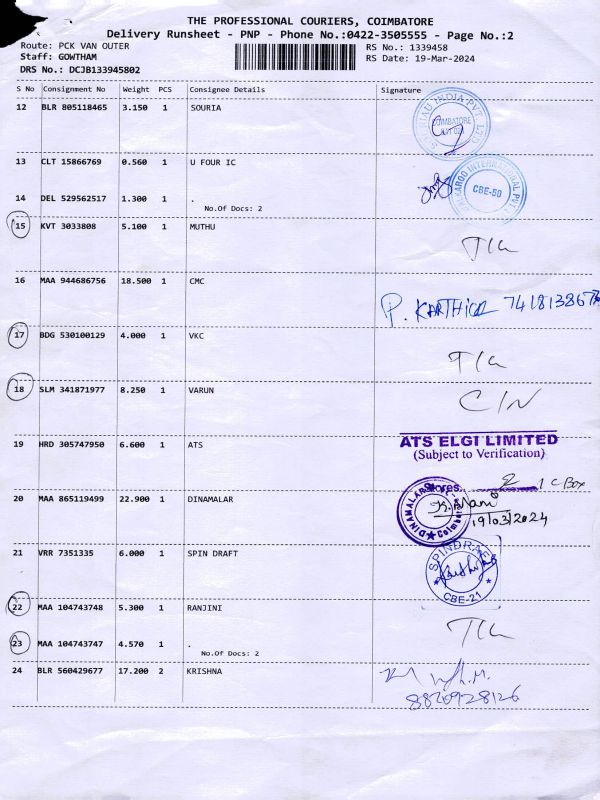 THE PROFESSIONAL COURIERS, COIMBATORE
Delivery Runsheet - PNP - Phone No.:0422-3505555 - Page No.:2
Route: PCK VAN OUTER RS No.: 1339458
Staff: GOWTHAM RS Date: 19-Mar-2024
DRS No.: DCJB133945802
S No Consignment No Weight PCS Consignee Details Signature
12 BLR 805118465 3.150 1 SOURIA
INDIA PVT. LTD
COIMBATORE
13 CLT 15866769 0.560 1 U FOUR IC
INTERNATIONAL
CBE-50
14 DEL 529562517 1.300 1 .
No.Of Docs: 2
15 KVT 3033808 5.100 1 MUTHU
T/L
16 MAA 944686756 18.500 1 CMC
P. KARTHICK
17 BDG 530100129 4.000 1 VKC
T/L
18 SLM 341871977 8.250 1 VARUN
C/N
19 HRD 305747950 6.600 1 ATS
ATS ELGI LIMITED
(Subject to Verification)
20 MAA 865119499 22.900 1 DINAMALAR
Stores
1 C Box
DINAMALAR
Coimbatore
K. Mani
19/03/2024
21 VRR 7351335 6.000 1 SPIN DRAFT
SPINDRAFT
CBE-21
22 MAA 104743748 5.300 1 RANJINI
T/L
23 MAA 104743747 4.570 1 .
No.Of Docs: 2
24 BLR 560429677 17.200 2 KRISHNA